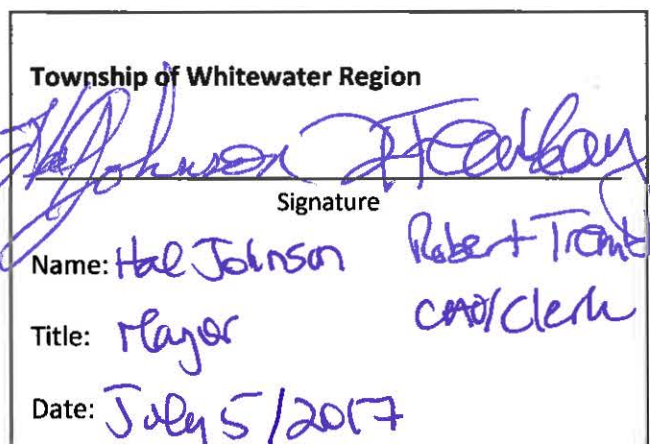 Township of Whitewater Region
Hal Johnson
Signature
Name: Hal Johnson Robert
Title: Mayor CAO/Clerk
Date: July 5/2017